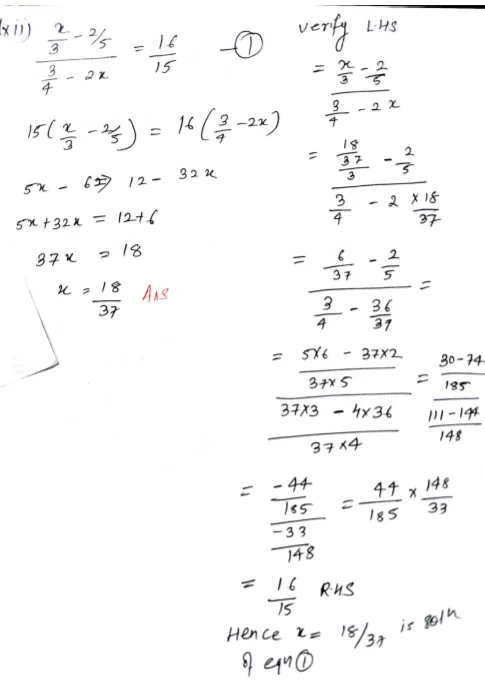 xii) (x/3 - 2/5) / (3/4 - 2x) = 16/15 —①
15(x/3 - 2/5) = 16(3/4 - 2x)
5x - 6 = 12 - 32x
5x + 32x = 12+6
37x = 18
x = 18/37 Ans
verify L.HS
= (x/3 - 2/5) / (3/4 - 2x)
= ((18/37)/3 - 2/5) / (3/4 - 2 × 18/37)
= (6/37 - 2/5) / (3/4 - 36/37) =
= ((5×6 - 37×2)/(37×5)) / ((37×3 - 4×36)/(37×4)) = ((30-74)/185) / ((111-144)/148)
= (-44/185) / (-33/148) = 44/185 × 148/33
= 16/15 R.HS
Hence x = 18/37 is soln
of eqn ①